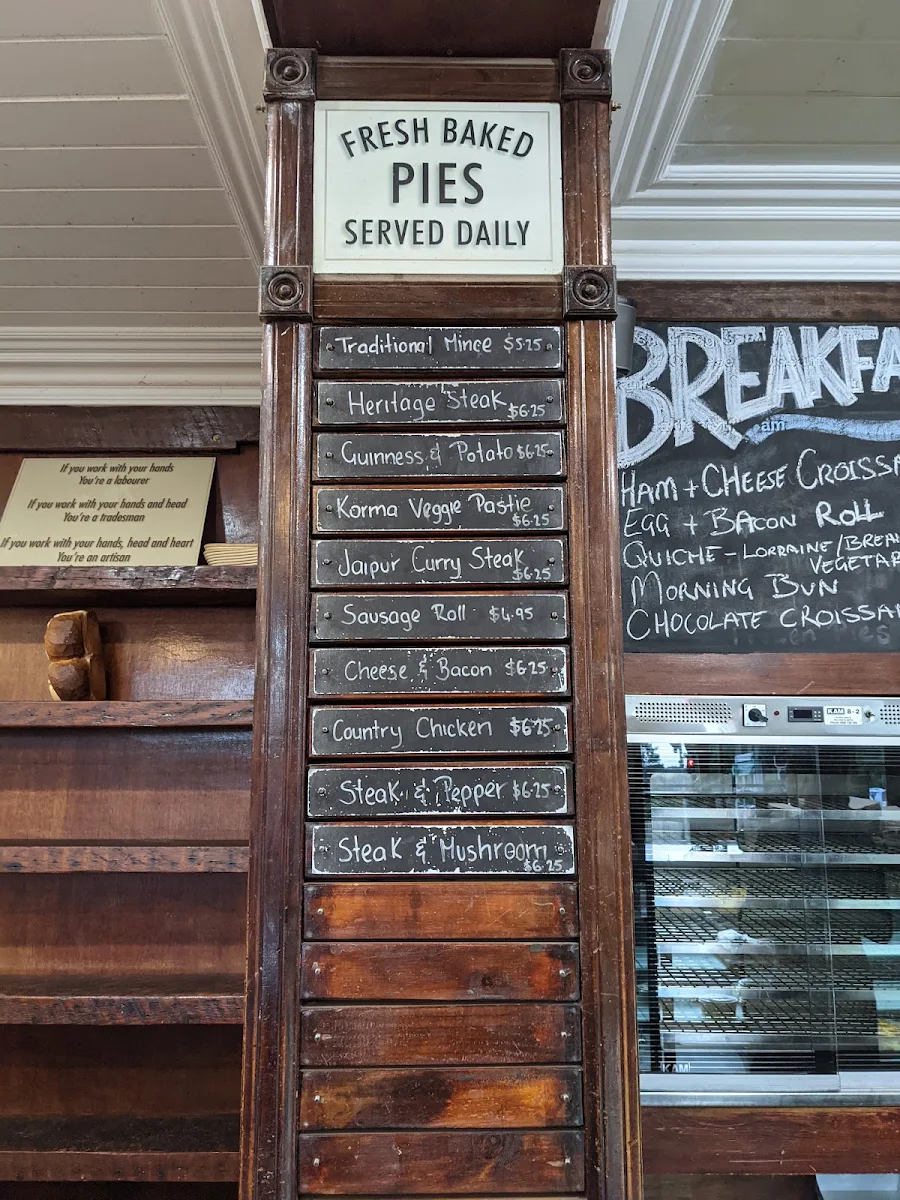 FRESH BAKED
PIES
SERVED DAILY
Traditional Mince $5.25
Heritage Steak $6.25
Guinness & Potato $6.25
Korma Veggie Pastie $6.25
Jaipur Curry Steak $6.25
Sausage Roll $4.95
Cheese & Bacon $6.25
Country Chicken $6.25
Steak & Pepper $6.25
Steak & Mushroom $6.25
If you work with your hands
You're a labourer
If you work with your hands and head
You're a tradesman
If you work with your hands, head and heart
You're an artisan
BREAKFA
am
HAM + CHEESE CROISSA
EGG + BACON ROLL
QUICHE - LORRAINE / BREA
VEGETAR
MORNING BUN
CHOCOLATE CROISSA
KAM B-2
KAM